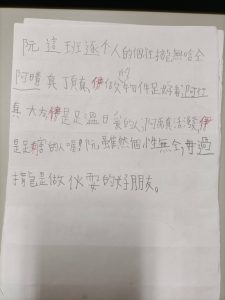 阮這班逐个人的個性攏無仝
阿晴真頂真,伊做代誌件件是好勢,阿紅
真大方,伊是足溫日氣的人,阿雨真活潑,伊
是足精的人喔!阮雖然個性無仝,毋過
攏是做伙耍的好朋友。